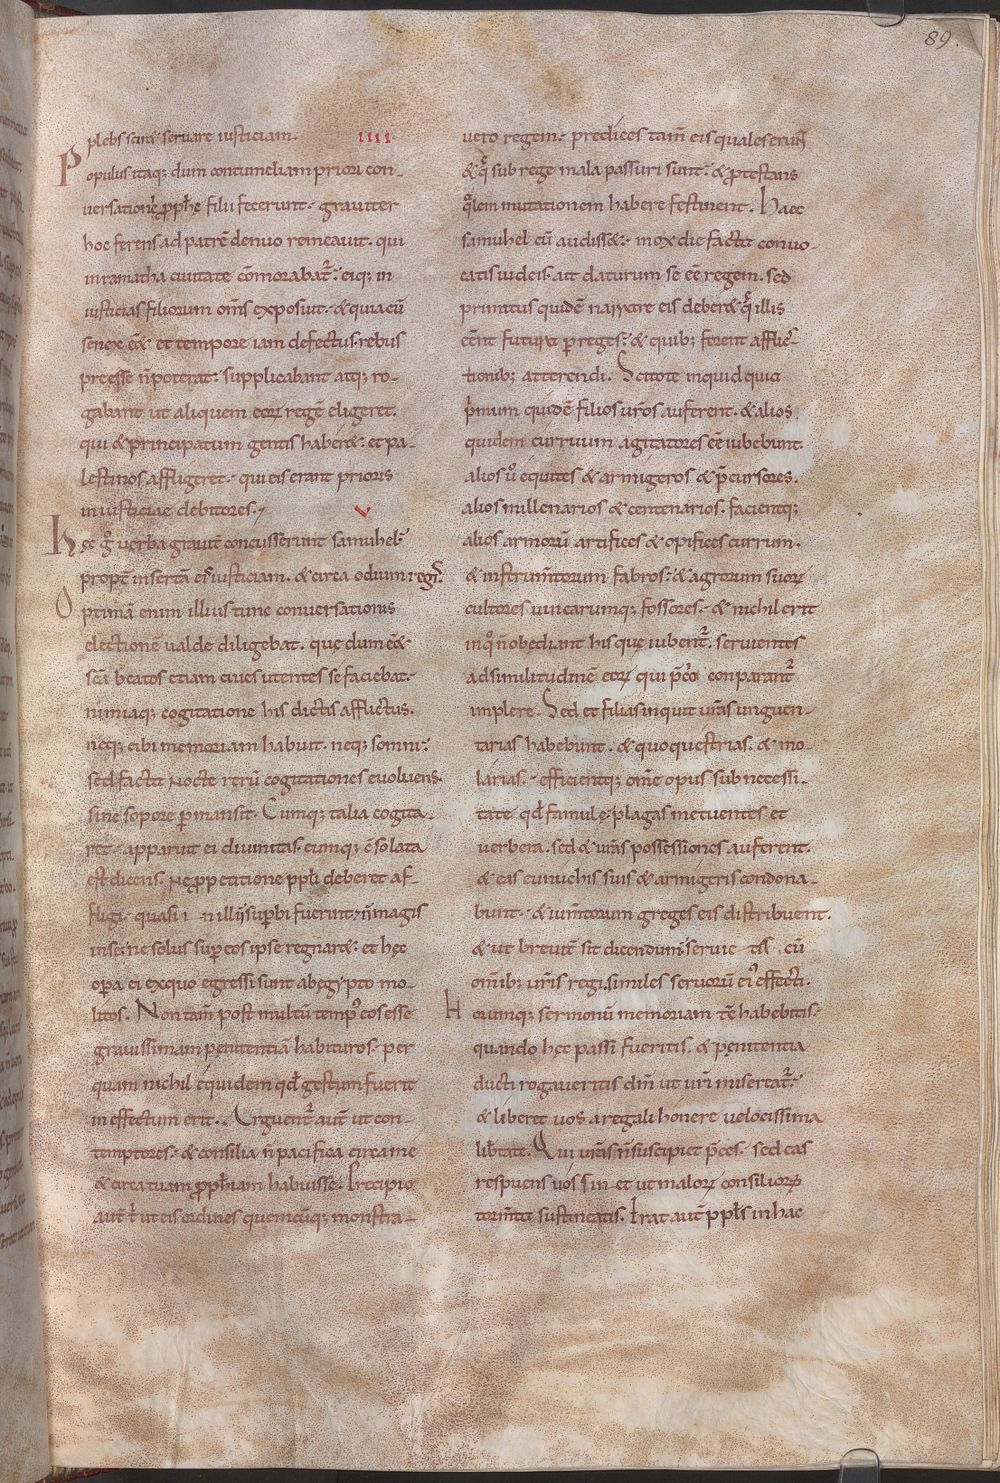 89.
plebs scira seruare iusticiam. IIII
Populus itaq; dum contumeliam priori con-
uersatione ꝓpħe filii fecerunt. grauiter
hoc ferens ad patrē denuo remeauit. qui
inramatha ciuitate cōmorabat᷑. eiq; in
iusticias filiorum om̄s exposuit. & quia cū
senex eēt et tempore iam defectus. rebus
preesse n̄ poterat. supplicabant atq; ro-
gabant ut aliquem eoꝝ regē eligeret.
qui & principatum gentis haberet. et pa-
lestinos affligeret. qui eis erant prioris
iniusticiae debitores. V
hęc g̊ uerba grauit̄ concusserunt samuhel
propt̄ insertā ei᷒ iusticiam. & circa odium regi᷒.
Optimā enim illius tunc conuersationis
electionē ualde diligebat. quę dum eēt
sc̄a beatos etiam ciues utentes se faciebat.
nimiaq; cogitatione his dictis afflictus.
neq; cibi memoriam habuit. neq; somni.
sed facta nocte rerū cogitationes euoluens.
sine sopore ꝑmansit. Cumq; talia cogita-
ret. apparuit ei diuinitas. eumq; c̄solata
est dicens. Ne ꝓ petitione ppłi deberet af-
fligi. quasi in illū suꝑbi fuerint. n̄ magis
inse. ne solus suꝑ eos ipse regnaret. et hęc
oꝑa ei exquo egressi sunt ab egypto mo-
litos. Non tam̄ post multū temp᷒ eos esse
grauissimam penitentiā habituros. per
quam nichil equidem qđ gestum fuerit
in effectum erit. Arguent᷑ aut̄ ut con-
temptores. & consilia n̄ pacifica circa me
& circa tuam ꝓpħiam habuisse. Precipio
aut̄ t ut eis ordines quemcūq; monstra-
uero regem. predices tam̄ eis quales erunt
& q̄ sub rege mala passuri sunt. & ꝓtestans
q̄lem mutationem habere festinent. Haec
samuhel cū audisset. mox die facta conuo-
catis iudeis. ait daturum se eē regem. sed
primitus quidē narrare eis deberet q̄ illis
eēnt futura ꝑ reges. & quib; forent afflic-
tionib; atterendi. Scitote inquid quia
p̄mum quidē filios ur̄os auferent. & alios
quidem curruum agitatores eē iubebunt.
alios u᷒ equites & armigeros & p̄cursores.
alios millenarios & centenarios. facientq;
alios armorū artifices & opifices currum.
& instrum̄torum fabros. & agrorum suoꝝ
cultores uinearumq; fossores. & nichil erit
inq᷒ n̄ obediant his quę iubent᷑. seruientes
ad similitudinē eoꝝ qui p̄cio conparant᷑
implere. Sed et filias inquit ur̄as unguen-
tarias habebunt. & quoquestrias. & mo-
larias. efficientq; om̄e opus sub necessi-
tate qđ famulę plagas metuentes et
uerbera. sed & ur̄as possessiones auferent.
& eas eunuchis suis & armigeris condona-
bunt. & ium̄torum greges eis distribuent.
& ut breuit̄ sit dicendum. seruietis cū
om̄ib; ur̄is regi. similes seruorū ei᷒ effecti.
horumq; sermonū memoriam tē habebitis.
quando hęc passi fueritis. & penitentia
ducti rogaueritis dm̄ ut ur̄i misereat᷑.
& liberet uos a regali honere uelocissima
lib̄tate. Qui ur̄as n̄ suscipiet p̄ces. sed eas
respuens uos sin et ut maloꝝ consilioꝝ
torm̄ta sustineatis. Erat aut̄ ppłs in hac